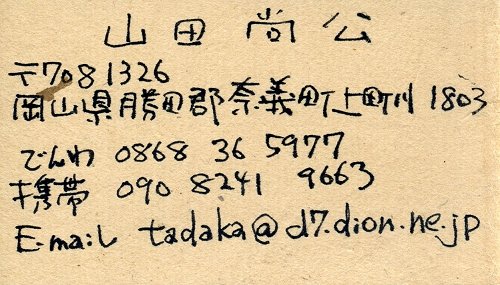 山田尚公
〒7081326
岡山県勝田郡奈義町上町川1803
でんわ 0868 36 5977
携帯 090 8241 9663
E.mail tadaka@d7.dion.ne.jp